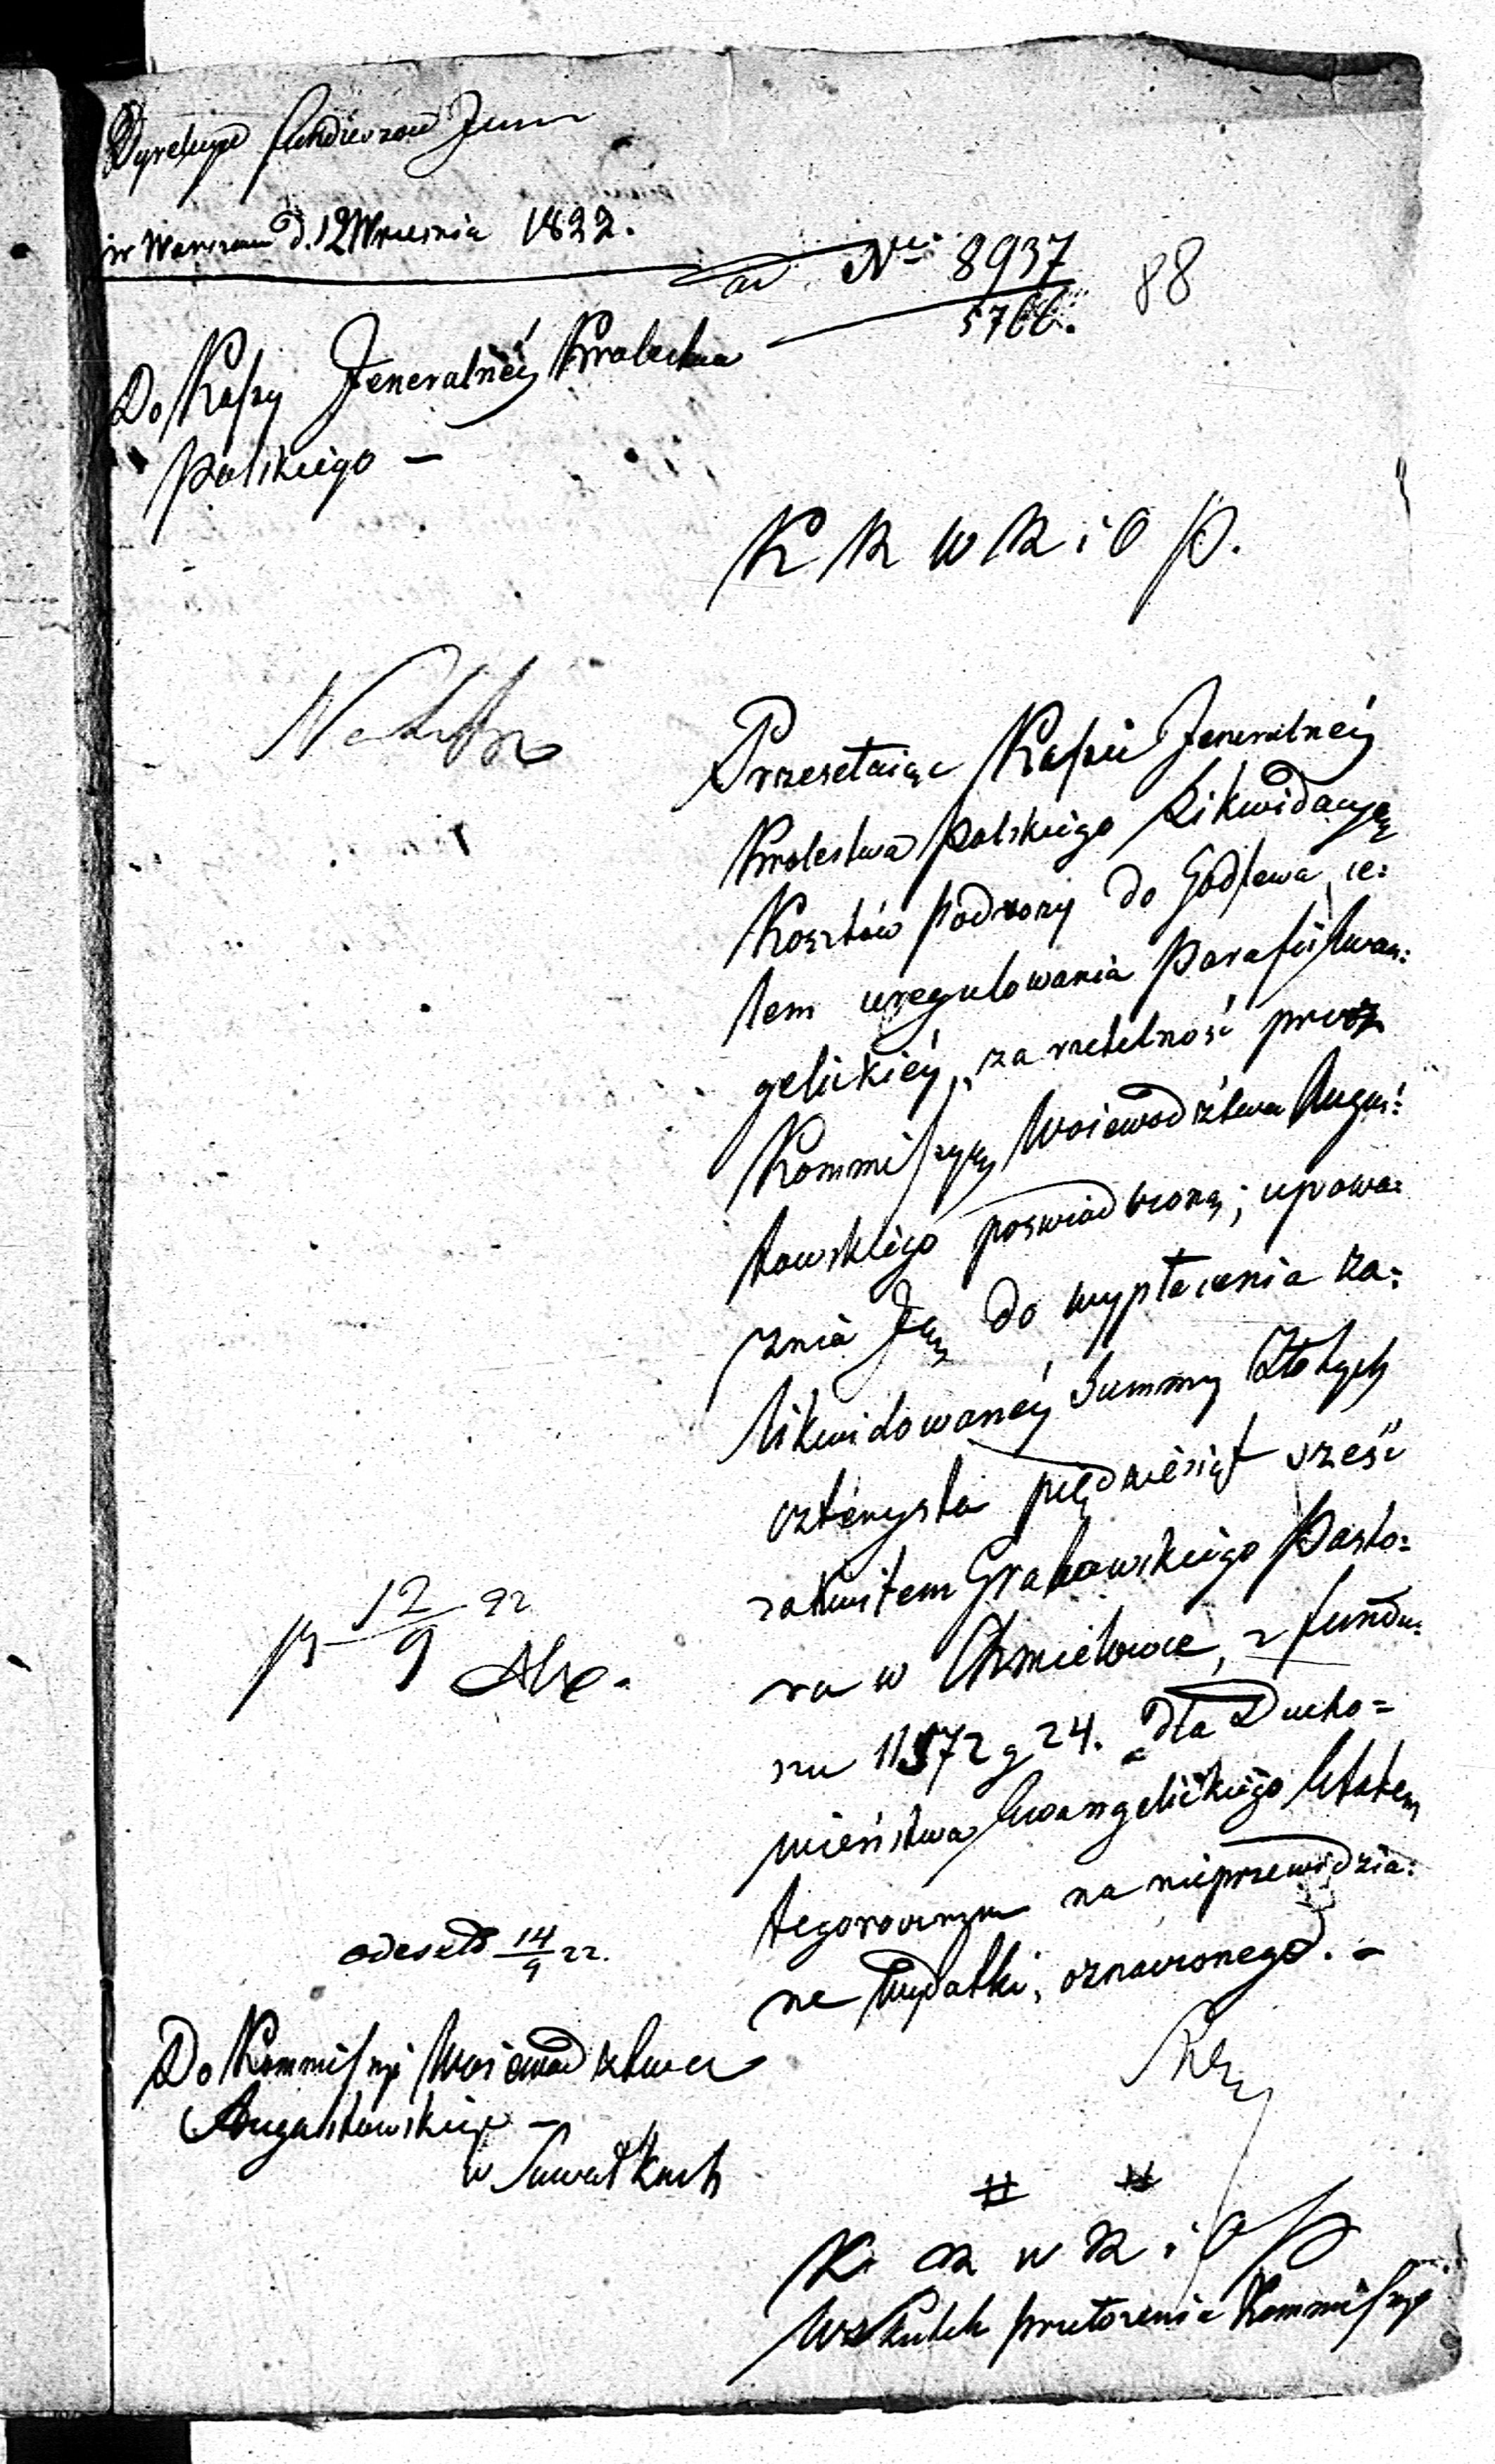 Dyrekcya funduszow Jene
w Warszawie d. 12 Wrzesnia 1822.
ad Nro 8937
5766.
88
Do Kaſsy Jeneralnéy Krolestwa
Polskiego —
K R W R i O P.
Przesełaiąc Kaſsie Jeneralnéy
Krolestwa Polskiego Likwidacyą
Kosztów podrozy do Godlewa, ce:
lem uregulowania Parafii Ewan:
gelickiéy, za rzetelność przez
Kommiſsyą Woiewodztwa Augus:
towskiego poswiadczoną; upowa:
znia Ją do wypłacenia za:
likwidowanéy Summy Złotych
czterysta pięćdziesiąt sześć
za kwitem Grabowskiego Pasto:
ra w Chmielowce, z fundu:
szu 11572 g 24. dla Ducho=
wieństwa Ewangelickiego Etatem
tegorocznym na nieprzewidzia:
ne wydatki, oznaczonego. —
12/9 22
odeszło 14/9 22.
Do Kommiſsyi Woiewodztwa
Augustowskiego —
w Suwałkach
# #
K R W R i O P
W skutek przełozenia Kommiſsyi